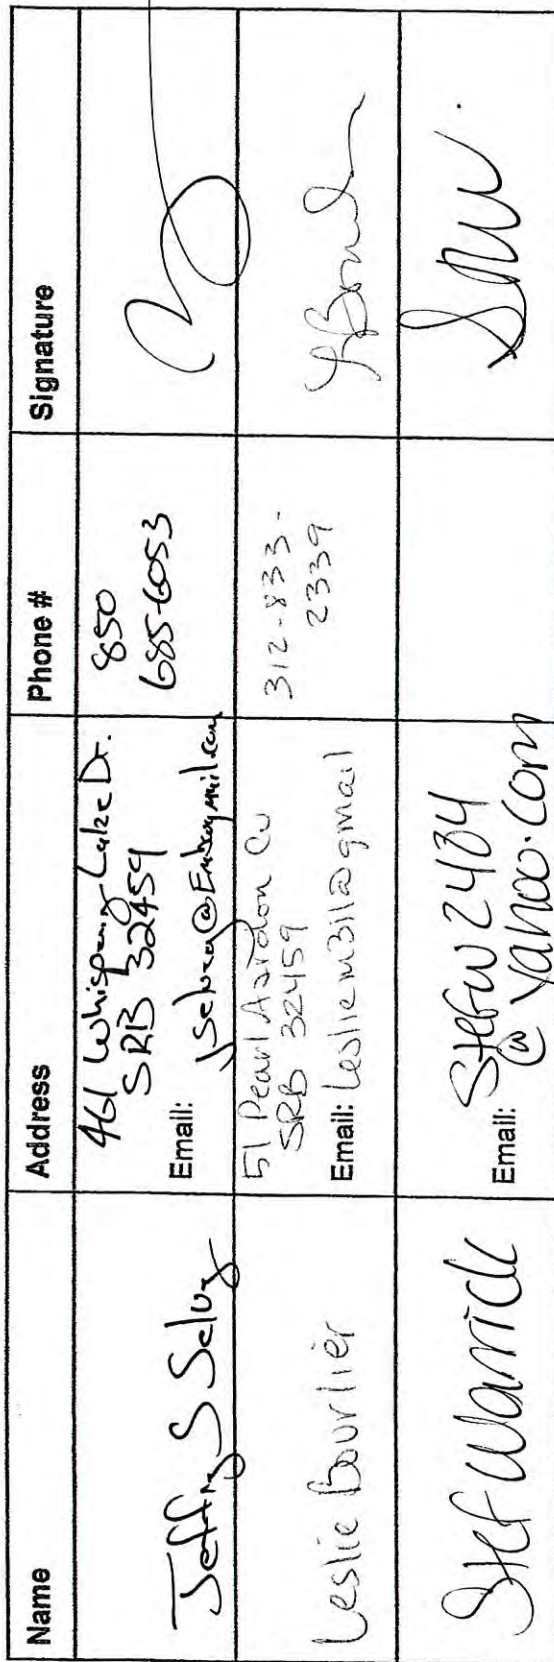 Name Address Phone # Signature
Jeffrey S Selvey
461 Whispering Lake Dr.
SRB 32459
Email:
850
685-6053
Leslie Bourlier
51 Pearl
Cv
SRB 32459
Email: lesliem311@gmail
312-833-
2339
Stef Warrick
Email: Stefw2484
@ yahoo.com